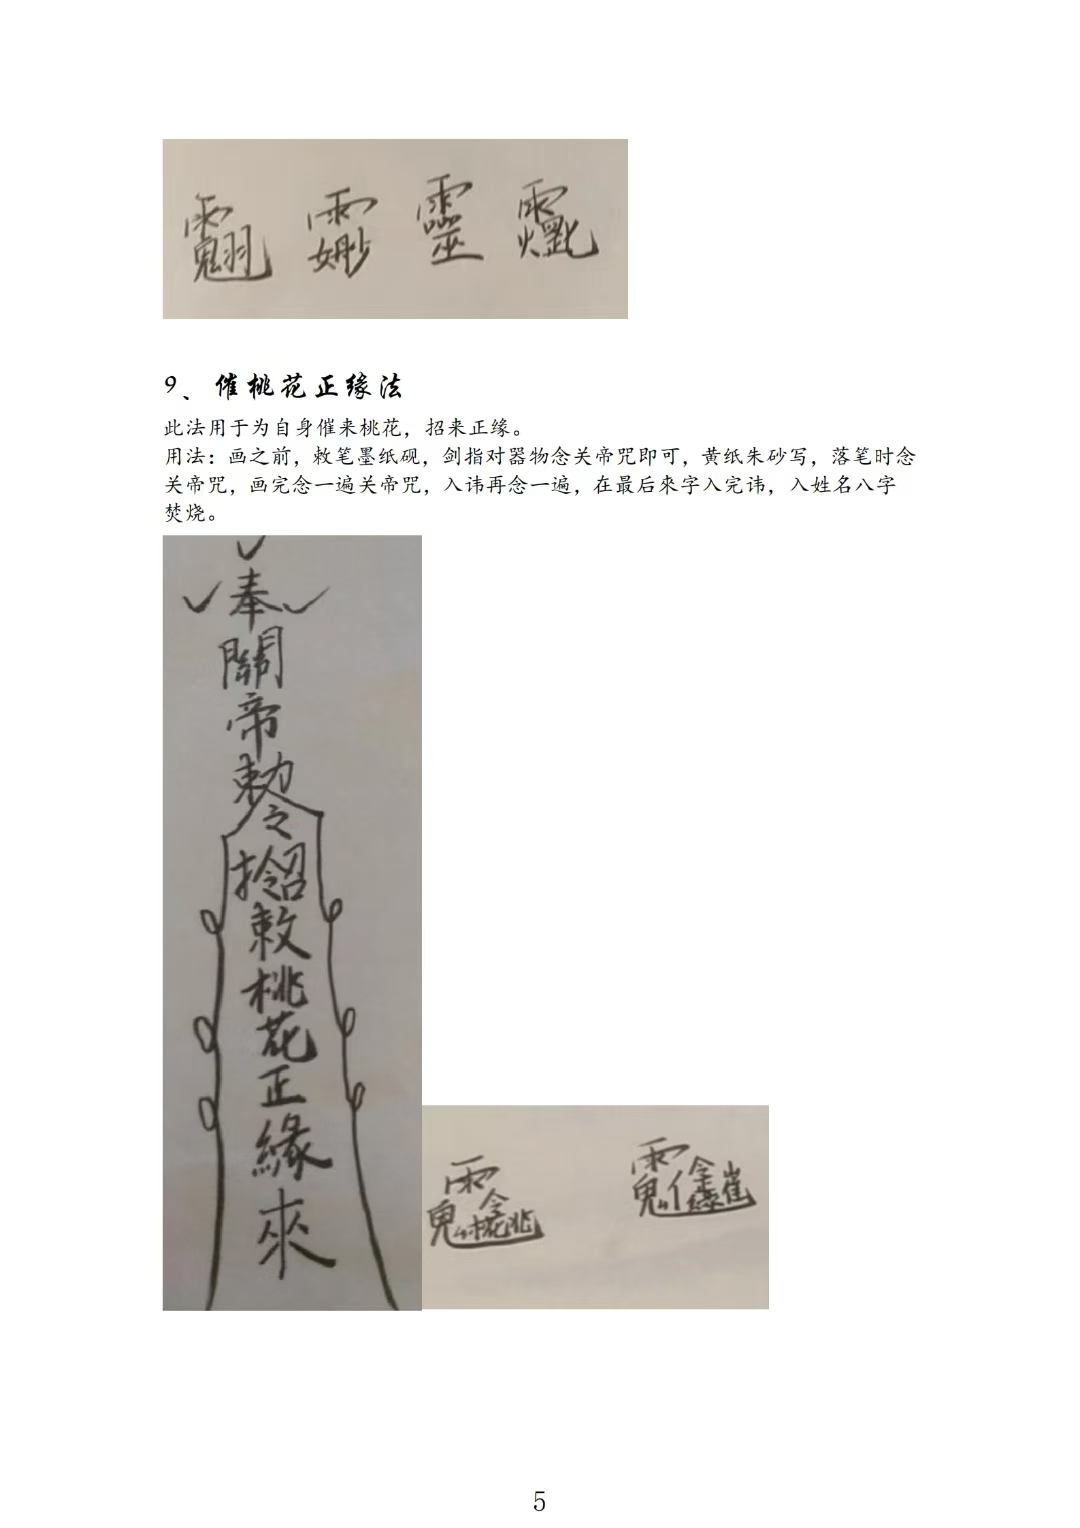 靈
9、催桃花正缘法
此法用于为自身催来桃花，招来正缘。
用法：画之前，敕笔墨纸砚，剑指对器物念关帝咒即可，黄纸朱砂写，落笔时念
关帝咒，画完念一遍关帝咒，入讳再念一遍，在最后來字入完讳，入姓名八字
焚烧。
奉
關
帝
勅
令
敕
桃
花
正
緣
來
5